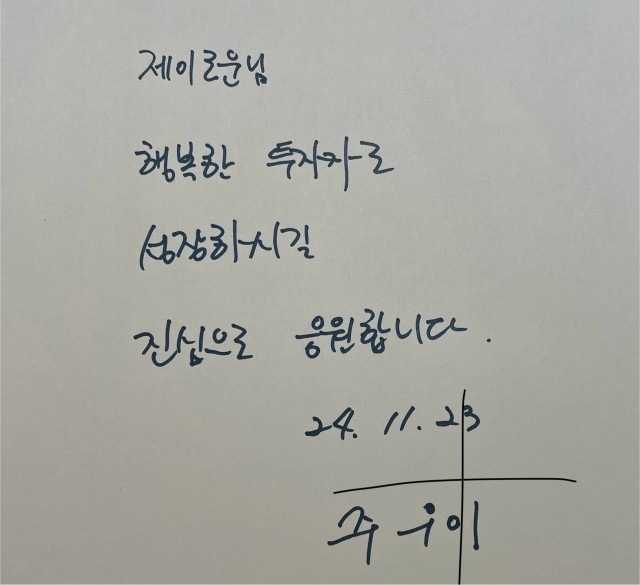 제이로운님
행복한 투자자로
성장하시길
진심으로 응원합니다.
24. 11. 23
주우이